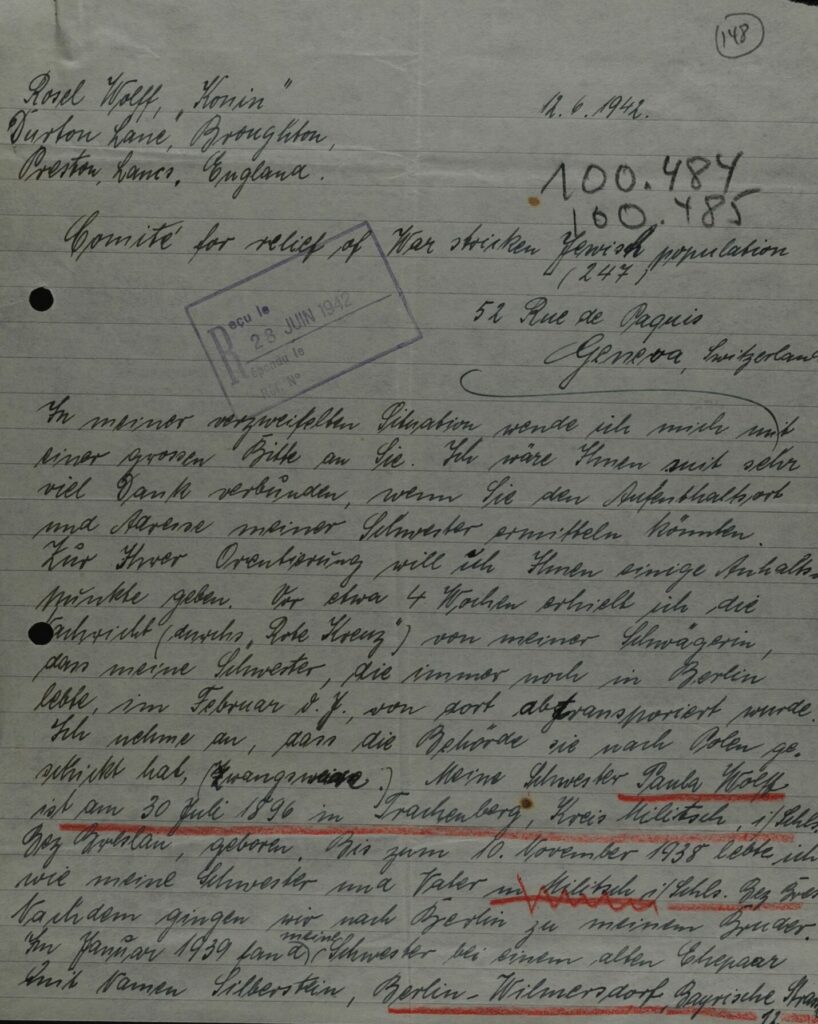 148
Rosel Wolff, "Konin"
Durton Lane, Broughton,
Preston, Lancs, England.
12.6.1942.
100.484
100.485
Comité for relief of War stricken Jewish population
(247)
52 Rue de Paquis
Geneva, Switzerland
Reçu le
28 JUIN 1942
Répondu le
No
In meiner verzweifelten Situation wende ich mich mit
einer grossen Bitte an Sie. Ich wäre Ihnen mit sehr
viel Dank verbunden, wenn Sie den Aufenthaltsort
und Adresse meiner Schwester ermitteln könnten.
Zur Ihrer Orentierung will ich Ihnen einige Anhalts-
punkte geben. Vor etwa 4 Wochen erhielt ich die
Nachricht (durchs "Rote Kreuz") von meiner Schwägerin,
dass meine Schwester, die immer noch in Berlin
lebte, im Februar d. J., von dort abtransportiert wurde.
Ich nehme an, dass die Behörde sie nach Polen ge-
schickt hat, (zwangsweise.) Meine Schwester Paula Wolff
ist am 30 Juli 1896 in Trachenberg, Kreis Militsch, i/Schls.
Bez Breslau, geboren. Bis zum 10. November 1938 lebte ich
wie meine Schwester und Vater in Militsch i/Schls. Bez Bres
Nachdem gingen wir nach Berlin zu meinem Bruder.
In Januar 1939 fand meine Schwester bei einem alten Ehepaar
mit Namen Silberstein, Berlin-Wilmersdorf, Bayrische Stras
12